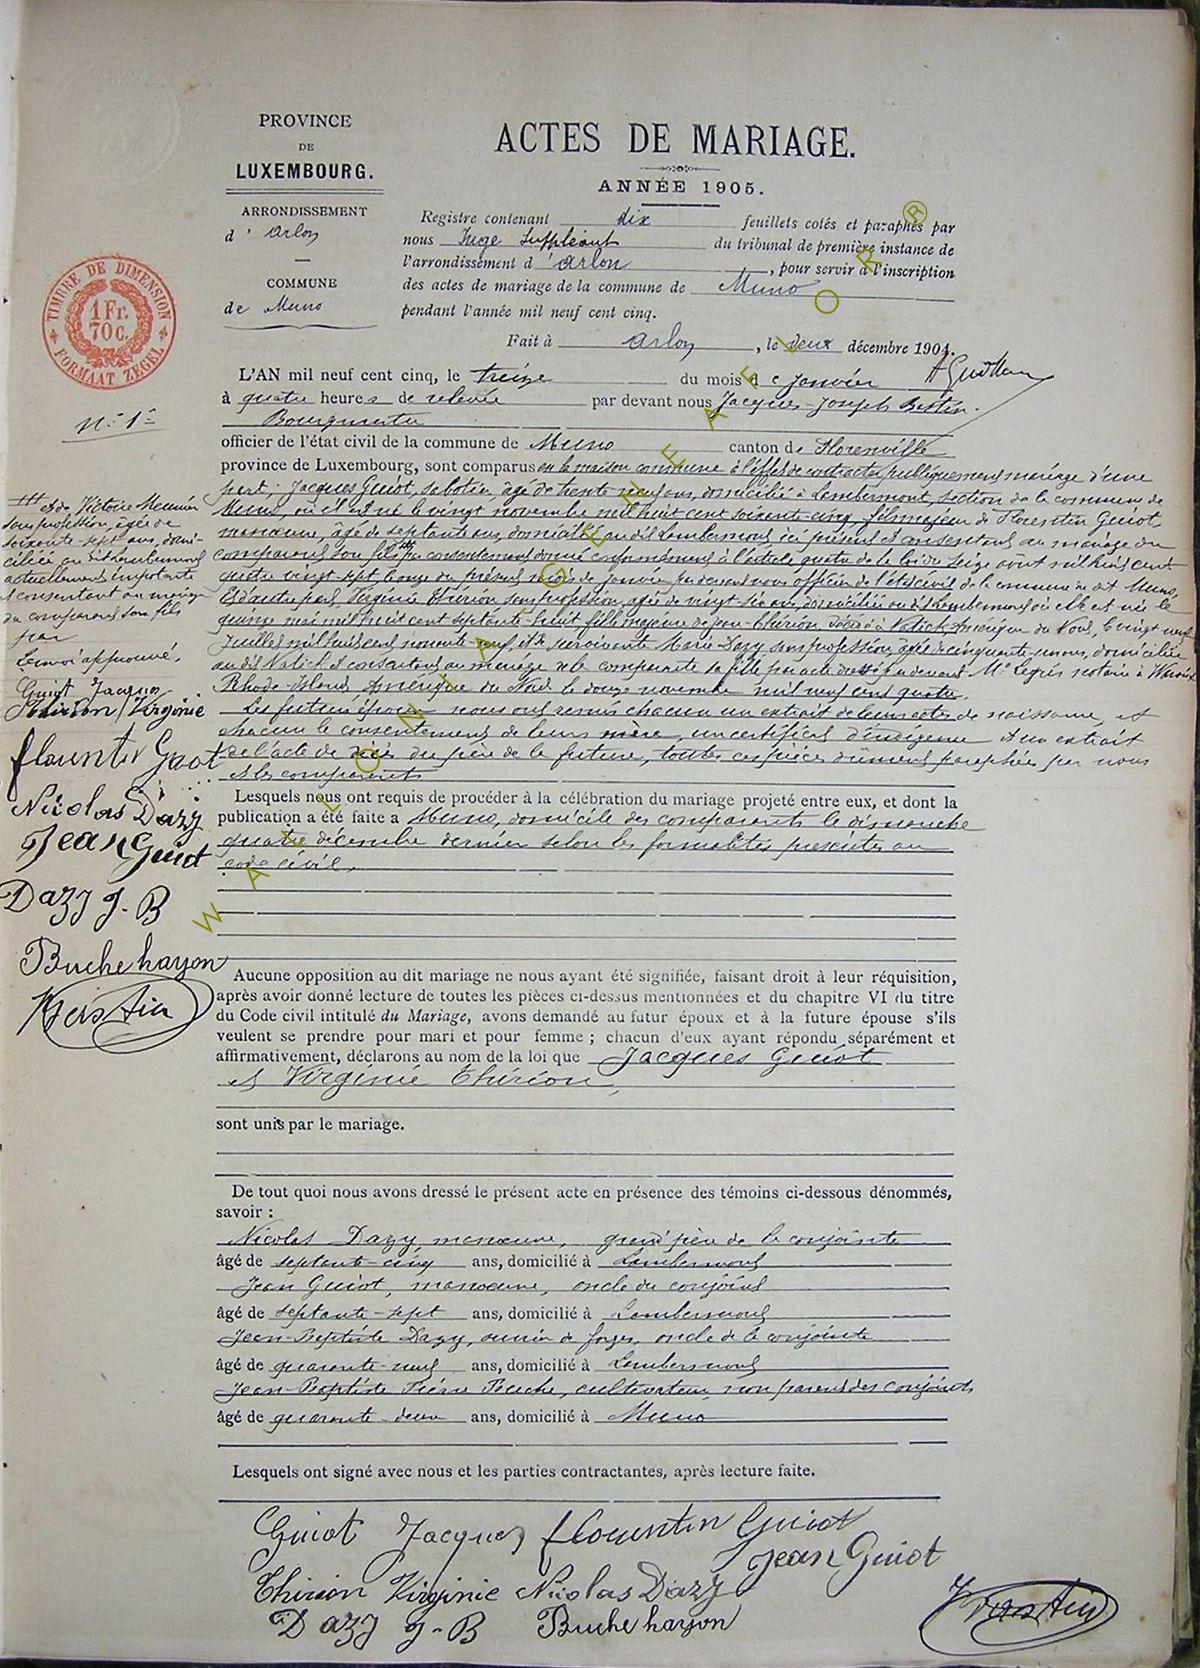 PROVINCE
DE
LUXEMBOURG.
ARRONDISSEMENT
d'Arlon
COMMUNE
de Muno
ACTES DE MARIAGE.
ANNÉE 1905.
Registre contenant dix feuillets cotés et paraphés par
nous Juge Suppléant du tribunal de première instance de
l'arrondissement d'Arlon, pour servir à l'inscription
des actes de mariage de la commune de Muno
pendant l'année mil neuf cent cinq.
Fait à Arlon, le deux décembre 1904.
TIMBRE DE DIMENSION
1 Fr.
70 c.
FORMAAT ZEGEL
N° 1
L'AN mil neuf cent cinq, le treize du mois de janvier
à quatre heures de relevée par devant nous Jacques-Joseph
Bourgmestre
officier de l'état civil de la commune de Muno canton de Florenville
province de Luxembourg, sont comparus en la maison commune à l'effet de contracter publiquement mariage d'une
part; Jacques Guiot, sabotier, âgé de trente neuf ans, domicilié à Lambermont, section de la commune de
Muno, où il est né le vingt novembre mil huit cent soixante-cinq, fils majeur de Florentin Guiot
manœuvre, âgé de septante ans, domicilié au dit Lambermont, ici présent et consentant au mariage du
comparant son fils consentement donné conformément à l'article quatre de la loi du seize août mil huit cent
quatre vingt sept, le onze du présent mois de janvier par devant nous officier de l'état civil de la commune de dit Muno,
Et d'autre part, Virginie Thirion sans profession, âgée de vingt-six ans, domiciliée au dit Lambermont où elle est née le
quinze mai mil huit cent septante-huit, fille majeure de Jean Thirion décédé à Natick, Amérique du Nord, le vingt neuf
Juillet mil huit cent nonante neuf, et de survivante Marie Dazy sans profession, âgée de cinquante ans, domiciliée
au dit Natick et consentant au mariage de la comparante sa fille par acte dressé par devant Mr Legris notaire à
Rhode-Island Amérique du Nord le douze novembre mil neuf cent quatre.
Les futurs époux nous ont remis chacun un extrait de leurs actes de naissance, et
chacun le consentement de leurs mère, un certificat d'indigence et un extrait
de l'acte de décès du père de la future, toutes ces pièces dûment paraphées par nous
et les comparants
et de Victoire Meunier
sans profession, âgée de
soixante-sept ans, domi-
ciliée au dit Lambermont
actuellement impotente
et consentant au mariage
du comparant son fils
par
Renvoi approuvé.
Guiot Jacques
Thirion Virginie
Florentin Guiot
Nicolas Dazy
Jean Guiot
Dazy J-B
Buche hayon
Lesquels nous ont requis de procéder à la célébration du mariage projeté entre eux, et dont la
publication a été faite à Muno, domicile des comparants le dimanche
quatre décembre dernier selon les formalités prescrites au
code civil.
Aucune opposition au dit mariage ne nous ayant été signifiée, faisant droit à leur réquisition,
après avoir donné lecture de toutes les pièces ci-dessus mentionnées et du chapitre VI du titre
du Code civil intitulé du Mariage, avons demandé au futur époux et à la future épouse s'ils
veulent se prendre pour mari et pour femme ; chacun d'eux ayant répondu séparément et
affirmativement, déclarons au nom de la loi que Jacques Guiot
et Virginie Thirion,
sont unis par le mariage.
De tout quoi nous avons dressé le présent acte en présence des témoins ci-dessous dénommés,
savoir :
Nicolas Dazy manœuvre, grand'père de la conjointe
âgé de septante-cinq ans, domicilié à Lambermont
Jean Guiot, manœuvre, oncle du conjoint
âgé de septante-sept ans, domicilié à Lambermont
Jean-Baptiste Dazy, ouvrier de forges, oncle de la conjointe
âgé de quarante-neuf ans, domicilié à Lambermont
Jean-Baptiste Pierre Buche, cultivateur, non parent des conjoints
âgé de quarante-deux ans, domicilié à Muno
Lesquels ont signé avec nous et les parties contractantes, après lecture faite.
Guiot Jacques Florentin Guiot
Jean Guiot
Thirion Virginie Nicolas Dazy
Dazy J-B Buche hayon
WALLONIA GENEAFLOR ®